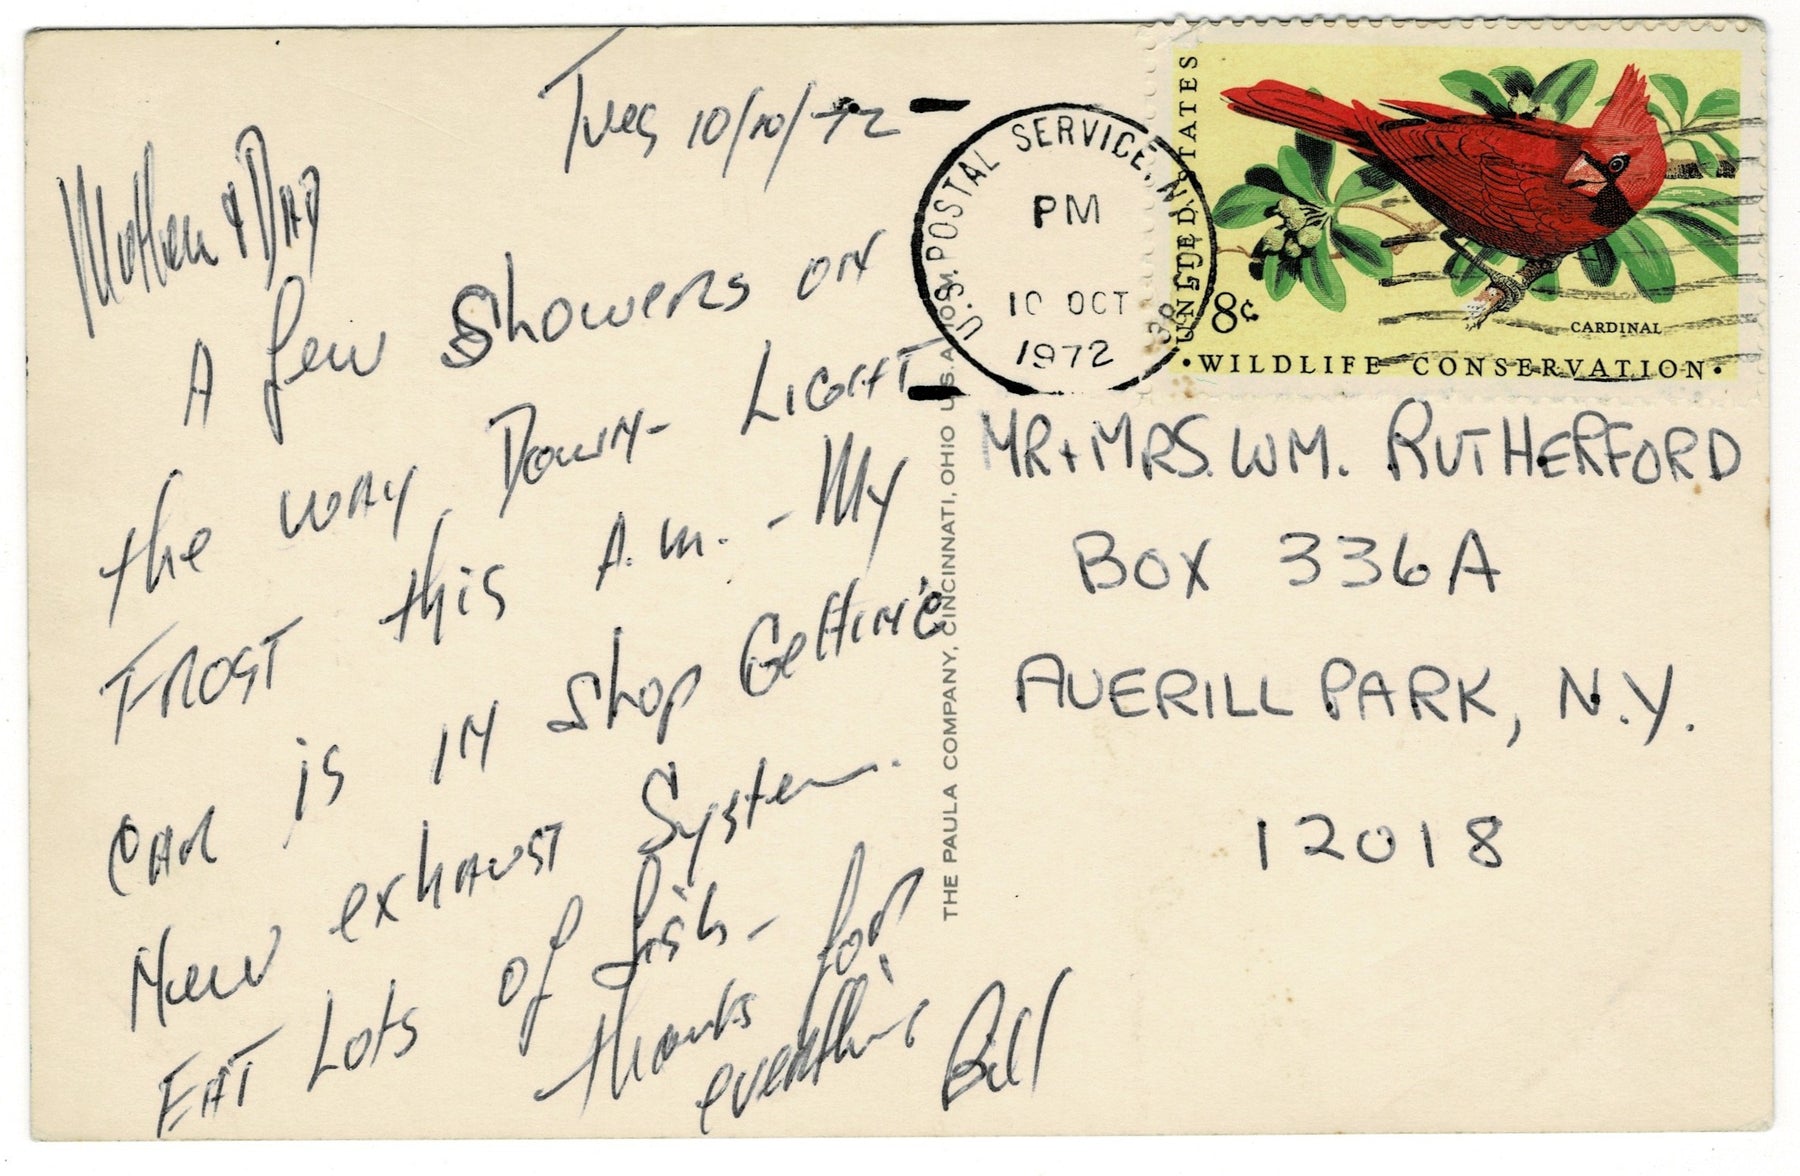 Tues 10/10/72
Mother & Dad
A few Showers on
the way Down - Light
Frost this A.M. - My
car is in shop Getting
New exhaust System.
Eat Lots of fish -
thanks for
everything
Bill
U.S. POSTAL SERVICE, N.Y.
PM
10 OCT
1972
UNITED STATES
8¢
CARDINAL
• WILDLIFE CONSERVATION •
THE PAULA COMPANY, CINCINNATI, OHIO U.S.A.
MR + MRS. WM. RUTHERFORD
BOX 336A
AVERILL PARK, N.Y.
12018